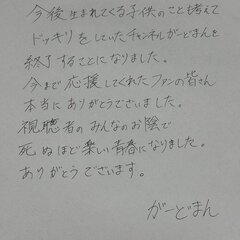 今後生まれてくる子供のことも考えて
ドッキリをしていたチャンネルがーどまんを
終了することになりました。
今まで応援してくれたファンの皆さん
本当にありがとうございました。
視聴者のみんなのお陰で
死ぬほど楽しい青春になりました。
ありがとうございます。
がーどまん